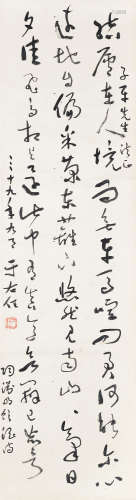 先生法正
結廬在人境而無車馬喧問君何能爾心
遠地自偏采菊東籬下悠然見南山山氣日
夕佳飛鳥相與還此中有真意欲辨已忘言
三十九年九月 于右任
陶淵明飲酒詩